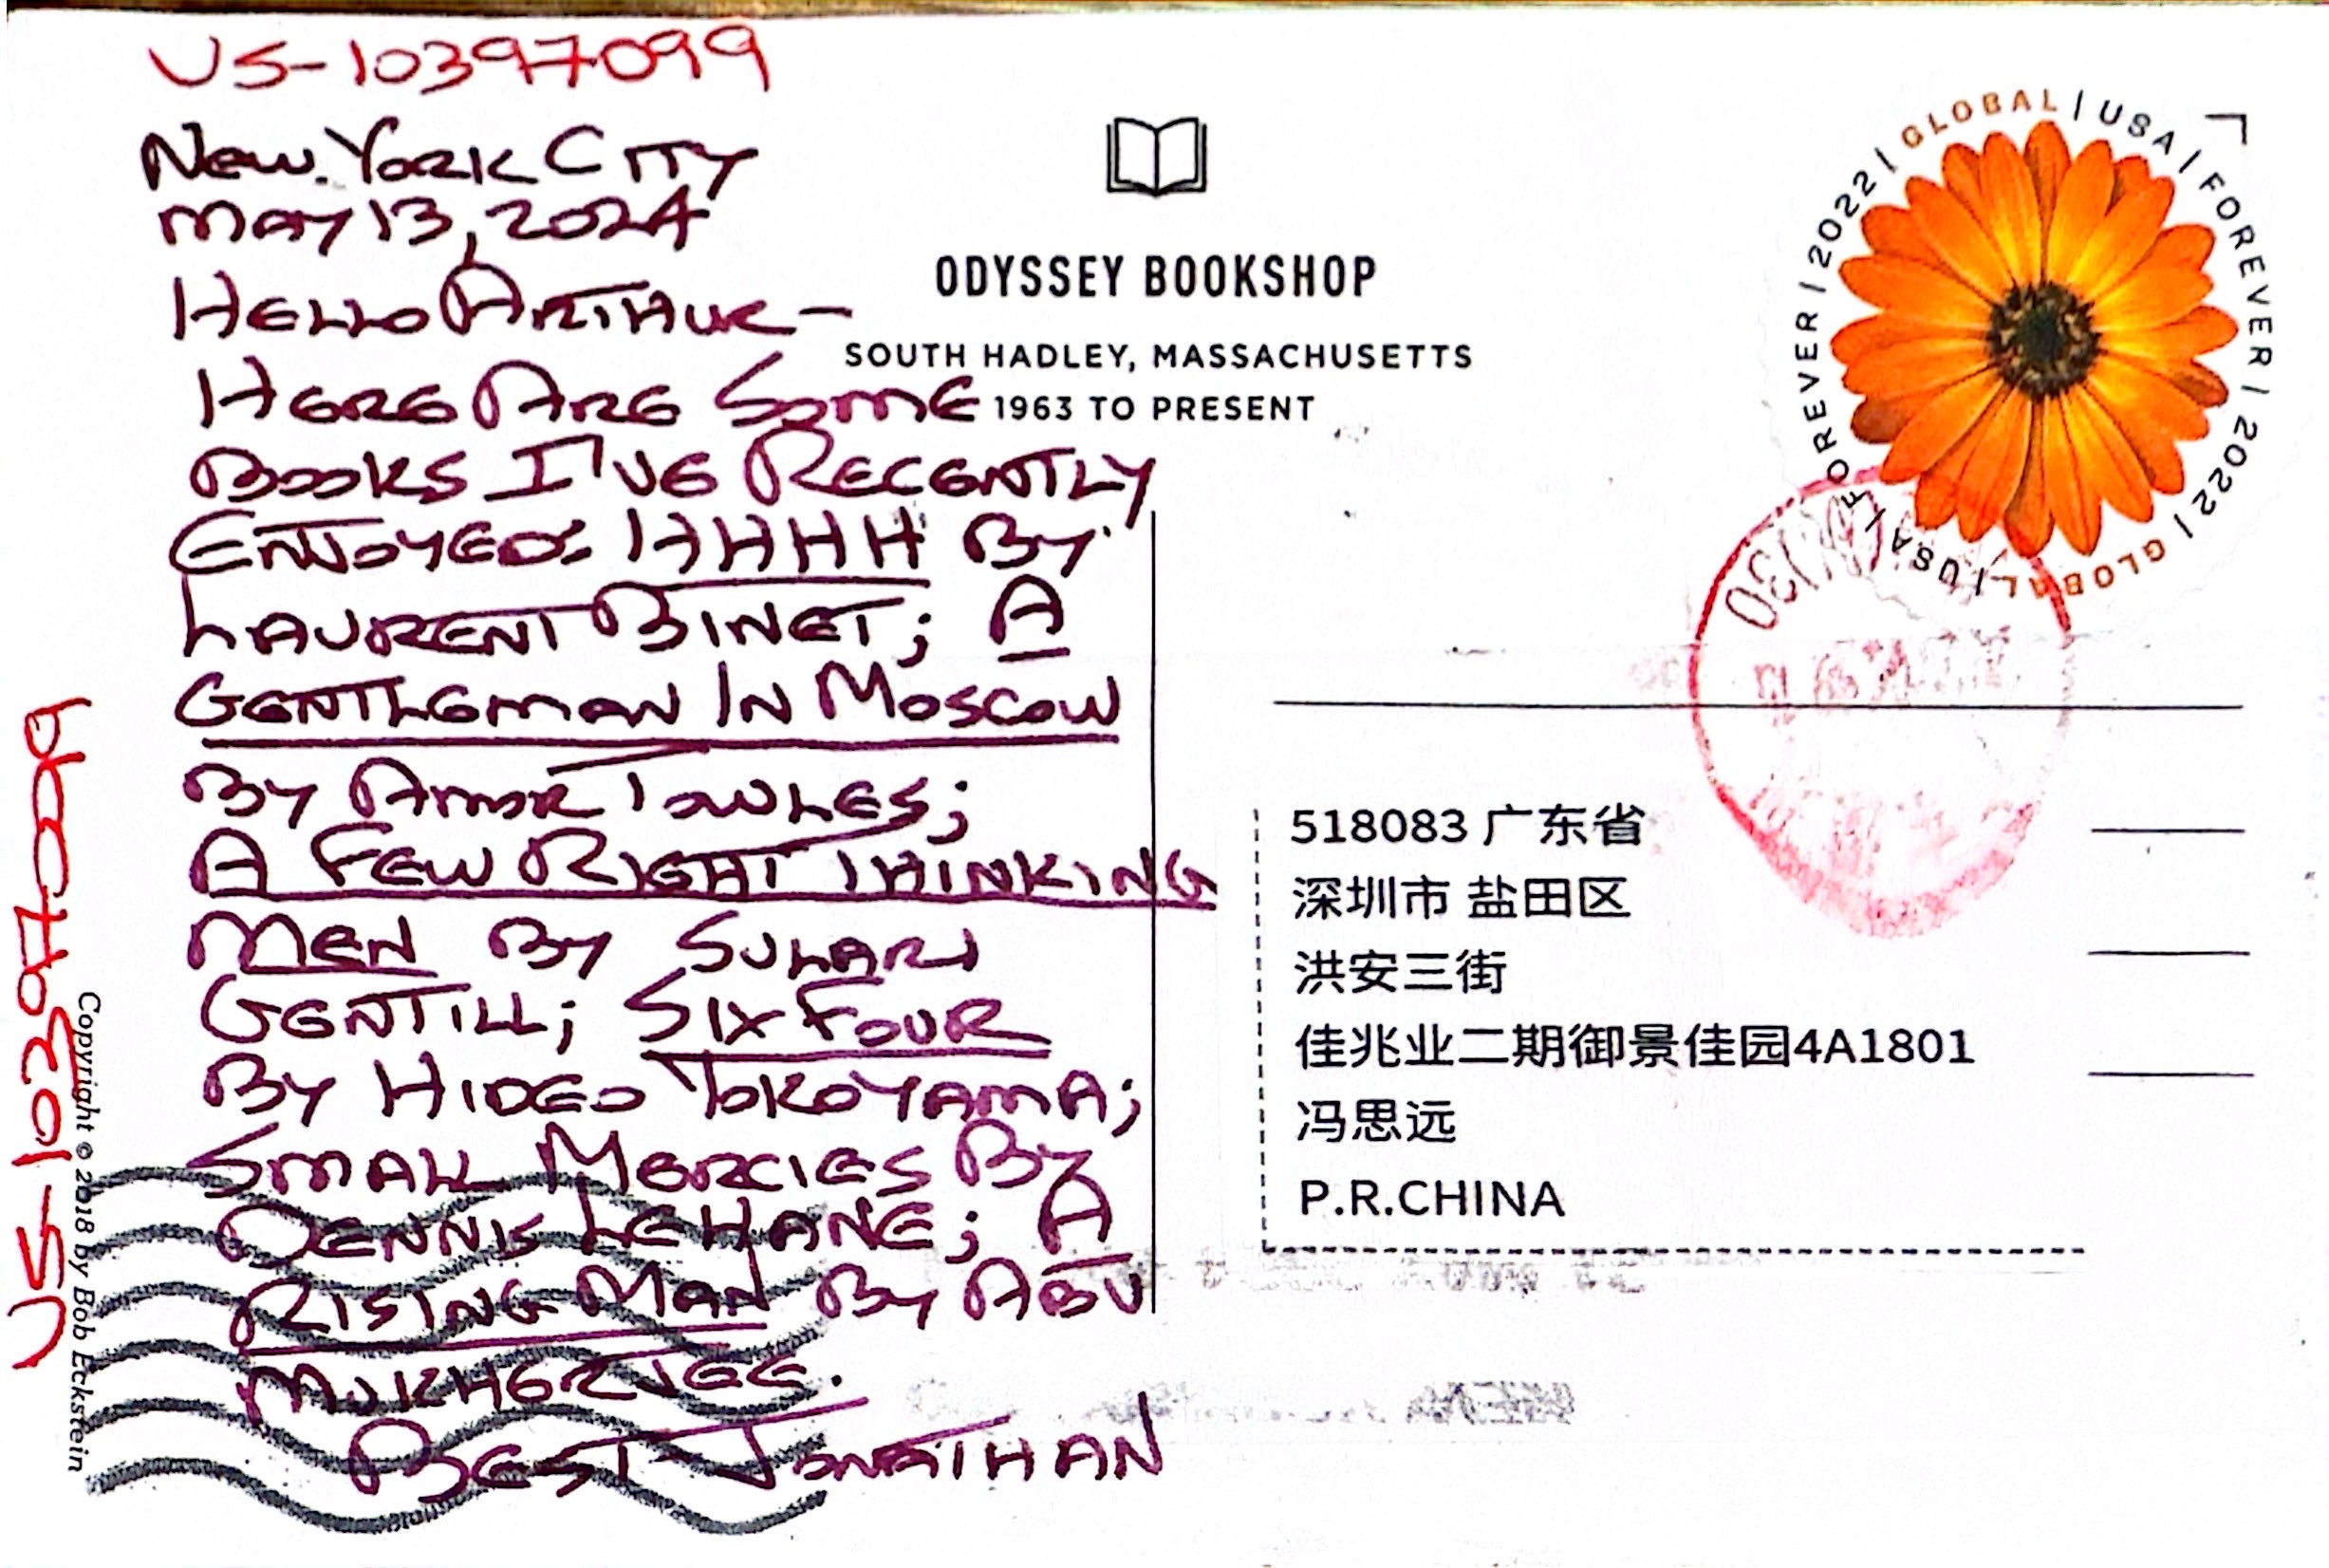 US-10397099
New York City
May 13, 2024
Hello Arthur-
Here Are Some
Books I've Recently
Enjoyed: HHHH By
Laurent Binet; A
Gentleman In Moscow
By Amor Towles;
A Few Right Thinking
Men By Sulari
Gentill; Six Four
By Hideo Yokoyama;
Small Mercies By
Dennis Lehane; A
Rising Man By Abu
Mukherjee.
Best Jonathan
US-10397099
Copyright © 2018 by Bob Eckstein
ODYSSEY BOOKSHOP
SOUTH HADLEY, MASSACHUSETTS
1963 TO PRESENT
GLOBAL | USA | FOREVER | 2022 | GLOBAL | USA | FOREVER | 2022 |
518083 广东省
深圳市 盐田区
洪安三街
佳兆业二期御景佳园4A1801
冯思远
P.R.CHINA